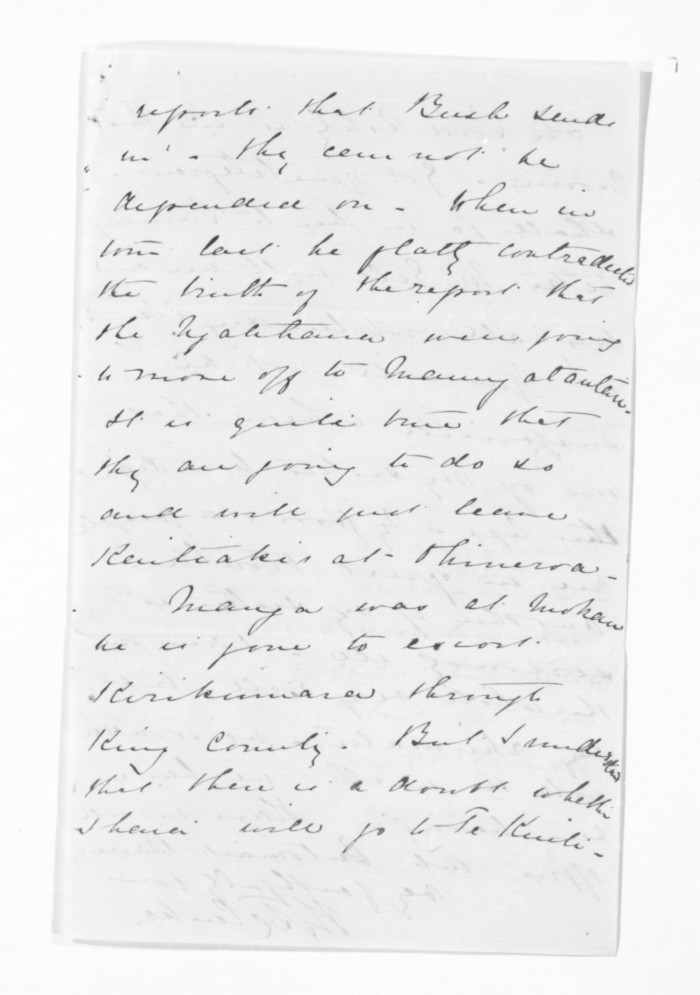 reports that Bush sends
in - they can not be
depended on - When in
town last he flatly contradicted
the truth of the report that
the Ngatihaua were going
to move off to Maungatautari.
It is quite true that
they are going to do so
and will just leave
Kaitiakis at Ohineroa -
Manga was at Mokau
he is gone to escort
Kirikumara through
King County. But I understand
that there is a doubt whether
Ihaia will go to Te Kuiti -